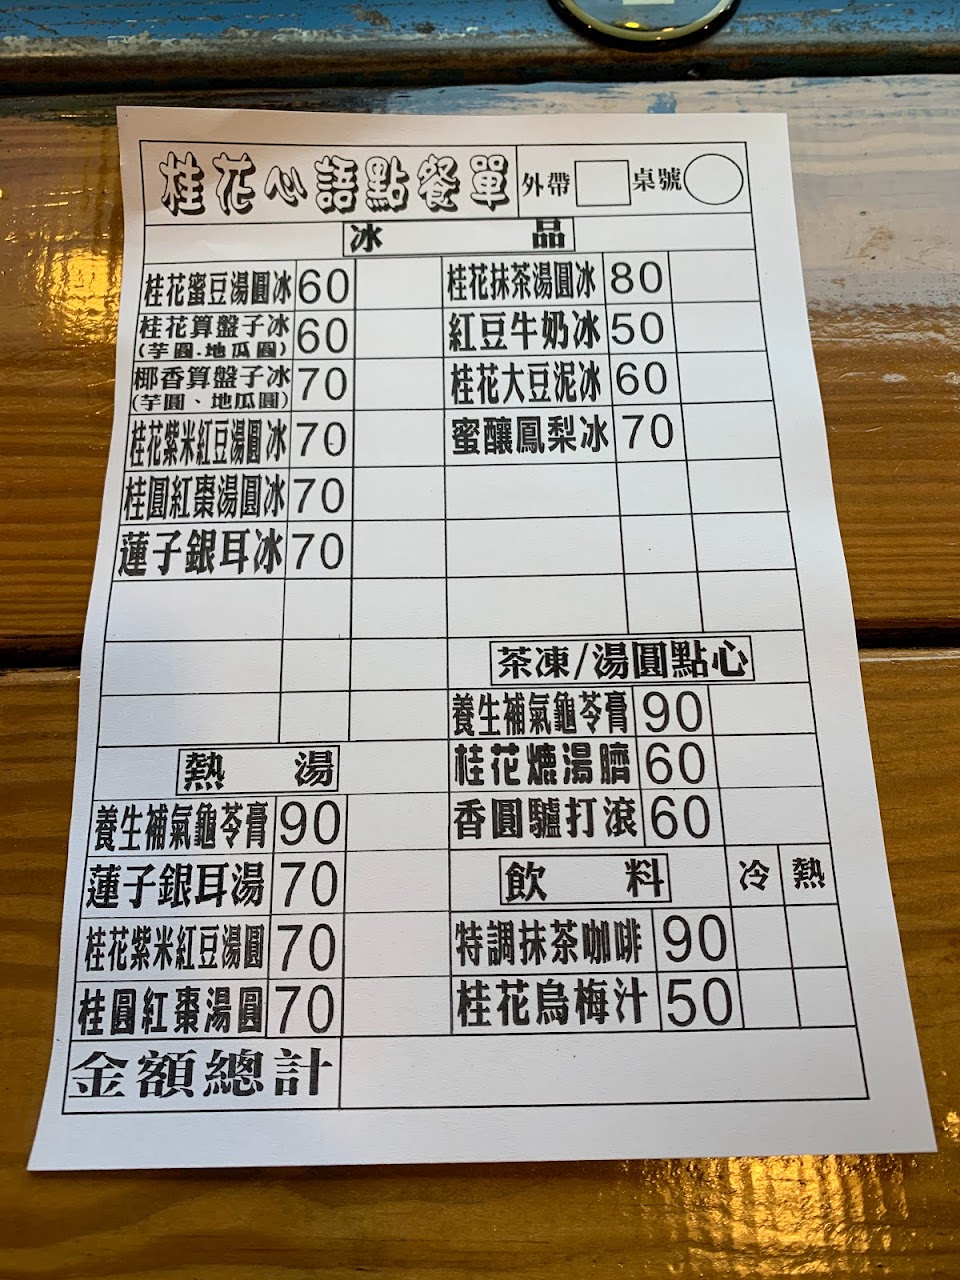 桂花心語點餐單 外帶 桌號
冰 品
桂花蜜豆湯圓冰 60 桂花抹茶湯圓冰 80
桂花算盤子冰 60 紅豆牛奶冰 50
(芋圓.地瓜圓)
椰香算盤子冰 70 桂花大豆泥冰 60
(芋圓、地瓜圓)
桂花紫米紅豆湯圓冰 70 蜜釀鳳梨冰 70
桂圓紅棗湯圓冰 70
蓮子銀耳冰 70
茶凍/湯圓點心
養生補氣龜苓膏 90
熱 湯
桂花熝湯臍 60
養生補氣龜苓膏 90 香圓驢打滾 60
蓮子銀耳湯 70 飲 料 冷 熱
桂花紫米紅豆湯圓 70 特調抹茶咖啡 90
桂圓紅棗湯圓 70 桂花烏梅汁 50
金額總計